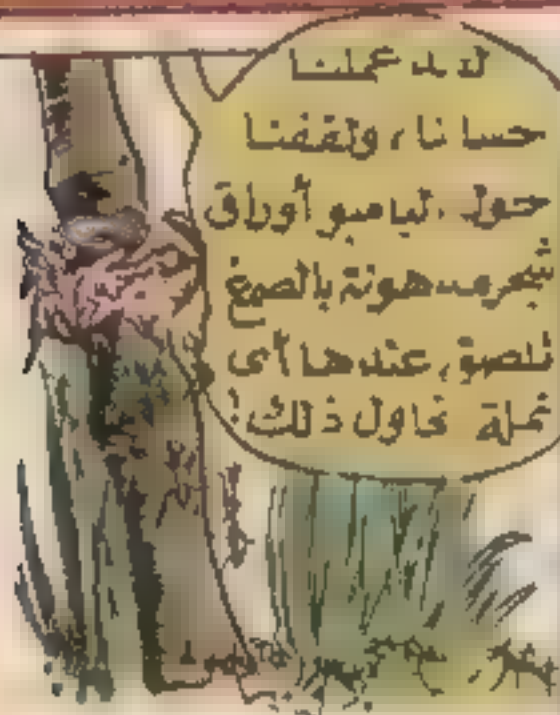 لقد عملنا
حسابنا، ولففنا
حول أوراق
شجر مدهونة بالصمغ
تلصق عندها أى
نملة تحاول ذلك!